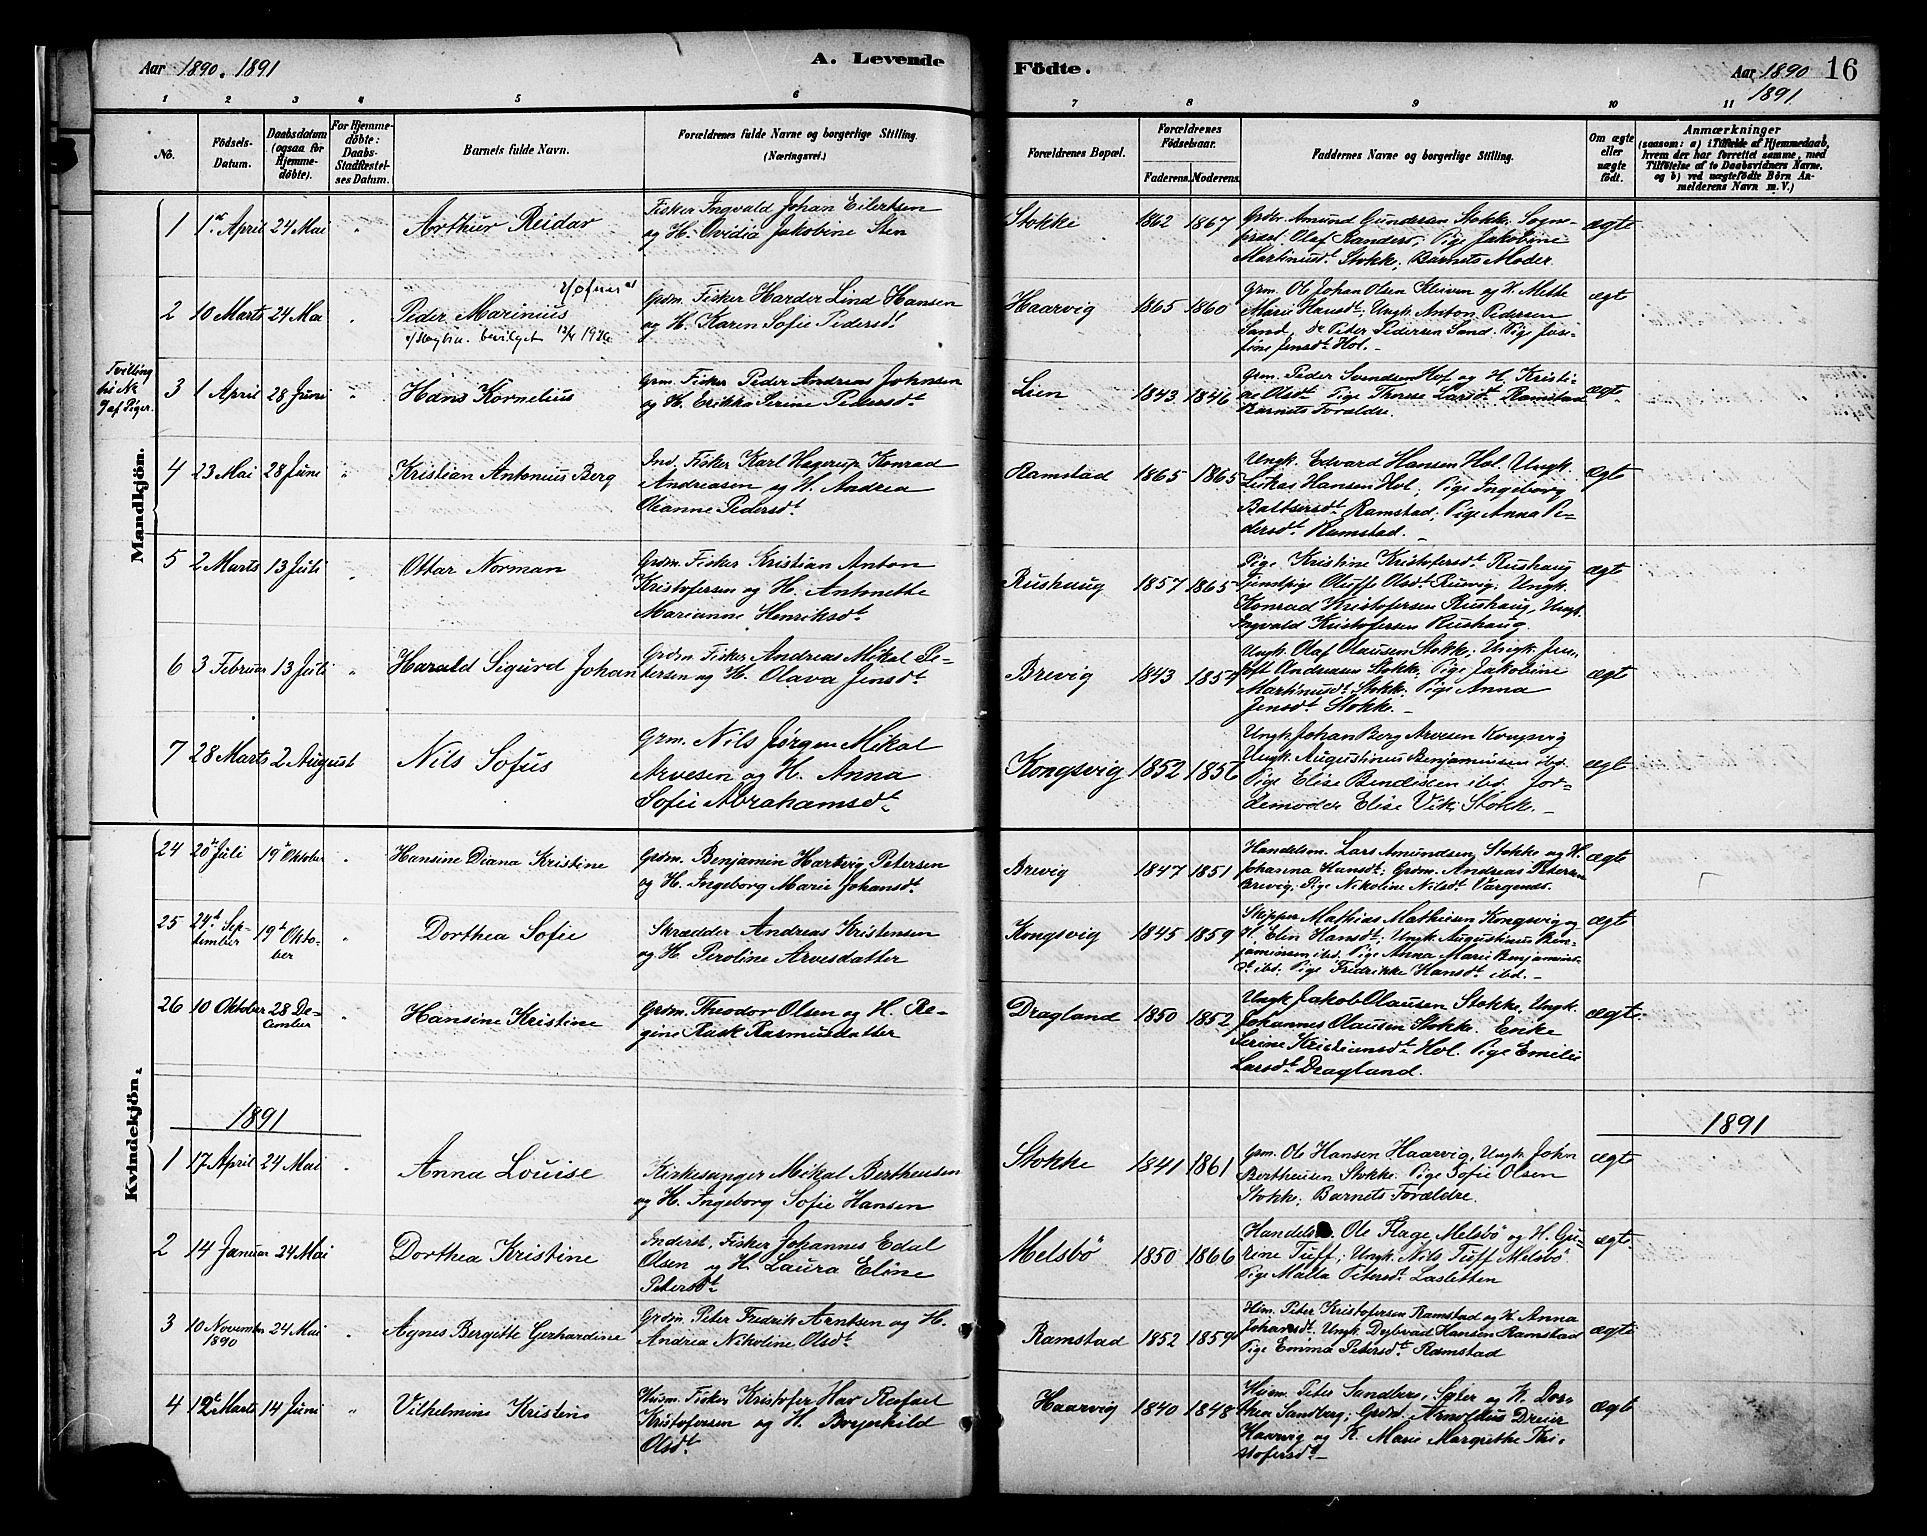 Aar 1890. 1891
A. Levende
Födte.
Aar 1890
1891
16
1 2 3 4 5 6 7 8 9 10 11
No.
Födsels-
Datum.
Daabsdatum
(ogsaa for
Hjemme-
döbte).
For Hjemme-
döbte:
Daabs-
Stadfæstel-
ses Datum.
Barnets fulde Navn.
Forældrenes fulde Navne og borgerlige Stilling.
(Næringsvei.)
Forældrenes Bopæl.
Forældrenes
Födselsaar.
Faderens. Moderens.
Faddernes Navne og borgerlige Stilling.
Om ægte
eller
uægte
født.
Anmærkninger
(saasom: a) i Tilfælde af Hjemmedaab,
hvem der har forrettet samme, med
Tilföielse af to Daabsvidners Navne,
og b) ved uægtefödte Börn An-
melderens Navn m. V.)
Mandkjön.
1 1ste April 24 Mai " Arthur Reidar
Fisker Ingvald Johan Eilertsen
og H. Ovidia Jakobine Sten
Stokke 1862 1867
Grdbr. Amund Gundersen Stokke, Sogn-
Olaf Randers, Pige Jakobine
Martinusdt Stokke, Barnets Moder.
ægte
2 10 Marts 24 Mai Peder Marinius
bevilget 12/4 1926
Grdm. Fisker Harder Lind Hansen
og H. Karen Sofie Pedersdt
Haarvig 1865 1860
Grm. Ole Johan Olsen Kleiven og H. Mette
Marie Hansdt, Ungk. Anton Pedersen
Sand, do Peter Pedersen Sand. Pige Jose-
fine Jensdt Hol.
ægte
Tvilling
til No
9 af Piger.
3 1 April 28 Juni " Hans Kornelius
Grm. Fisker Peder Andreas Johnsen
og H. Erikka Serine Pedersdt
Lien 1843 1846
Grm. Peder Svendsen Hof og H. Kristi-
ne Olsdt Pige Therese Larsdt Ramstad
Barnets Forældre.
ægte
4 23 Mai 28 Juni " Kristian Antonius Berg
Ind. Fisker Karl Hagerup Konrad
Andreasen og H. Andrea
Oleanne Pedersdt
Ramstad 1865 1865
Ungk. Edvard Hansen Hol. Ungk.
Lukas Hansen Hol, Pige Ingeborg
Baltsersdt Ramstad, Pige Anna Pe-
dersdt Ramstad.
ægte
5 2 Marts 13 Juli " Ottar Norman
Grdm. Fisker Kristian Anton
Kristofersen og H. Antonette
Marianne Henriksdt
Rushaug 1857 1865
Pige Kristine Kristofersdt Rushaug
Oluffe Olsdt Rusvig, Ungk.
Konrad Kristofersen Rushaug, Ungk.
Ingvald Kristofersen Rushaug.
ægte
6 3 Februar 13 Juli " Harald Sigurd Johan
Grdm. Fisker Andreas Mikal Pe-
tersen og H. Olava Jensdt
Brevig 1843 1857
Ungk. Olaf Olausen Stokke, Ungk. Jen-
toft Andreasen Stokke, Pige Jakobine
Martinusdt Stokke. Pige Anna
Jensdt Stokke.
ægte
7 28 Marts 2 August Nils Sofus
Grm. Nils Jørgen Mikal
Arvesen og H. Anna
Sofie Abrahamsdt
Kongsvig 1852 1856
Ungk. Johan Berg Arvesen Kongsvig
Ungk. Augustinus Benjaminsen ibd.
Pige Elise Bendixen ibd. Jor-
demoder Elise Vik, Stokke.
ægte
Kvindekjön.
24 20de Juli 19de Oktober " Hansine Diana Kristine
Grdm. Benjamin Hartvig Petersen
og H. Ingeborg Marie Johansdt
Brevig 1847 1851
Handelsm. Lars Amundsen, Stokke og H.
Johanna Hansdt, Grdm. Andreas Petersen
Brevig, Pige Nikoline Nilsdt
ægte
25 24de Sep-
tember 19de Okto-
ber " Dorthea Sofie
Skrædder Andreas Kristensen
og H. Peroline Arvesdatter
Kongsvig 1845 1859
Skipper Mathias Mathisen Kongsvig og
H. Elin Hansdt, Ungk. Augustinus Ben-
jaminsen ibd. Pige Anna Marie Benjamins-
dt ibd. Pige Fredrikke Hansdt ibd.
ægte
26 10 Oktober 28 De-
cember " Hansine Kristine
Grdm. Theodor Olsen og H. Re-
gine Rask Rasmusdatter
Dragland 1850 1852
Ungk. Jakob Olausen Stokke, Ungk.
Johannes Olausen Stokke. Enke
Serine Kristiansdt Hol. Pige Emilie
Larsdt Dragland.
ægte.
1891
1891
1 17 April 24 Mai Anna Louise
Kirkesanger Mikal Bertheusen
og H. Ingeborg Sofie Hansen
Stokke 1841 1861
Grm. Ole Hansen Haarvig, Ungk. John
Bertheusen Stokke. Pige Sofie Olsen
Stokke, Barnets Forældre.
ægte
2 14 Januar 24 Mai " Dorthea Kristine
Inderst, Fisker Johannes Edal
Olsen og H. Laura Eline
Petersdt
Melsbö 1850 1866
Handelsm. Ole Flage, Melsbö og H. Gu-
rine Tuff, Ungk. Nils Tuff Melsbö
Pige Malla Petersdt Lasletten
ægte.
3 10 November
1890 24 Mai " Agnes Bergitte Gerhardine
Grdm. Peter Fredrik Arntsen og H.
Andrea Nikoline Olsdt
Ramstad 1852 1859
Hsm. Peter Kristofersen Ramstad og H. Anna
Johansdt, Ungk. Hansen Ramstad
Pige Emma Petersdt Ramstad
ægte
4 12te Marts 14 Juni " Vilhelmine Kristens
Husm. Fisker Kristofer Hav Rafael
Kristofersen og H. Brynhild
Olsdt
Haarvig 1840 1848
Husm. Peter Sandberg, Sæter og H. Dor-
thea Sandberg, Grdm. Arnoldus Dreier
Haarvig og H. Marie Margrethe Kri-
stofersdt
ægte